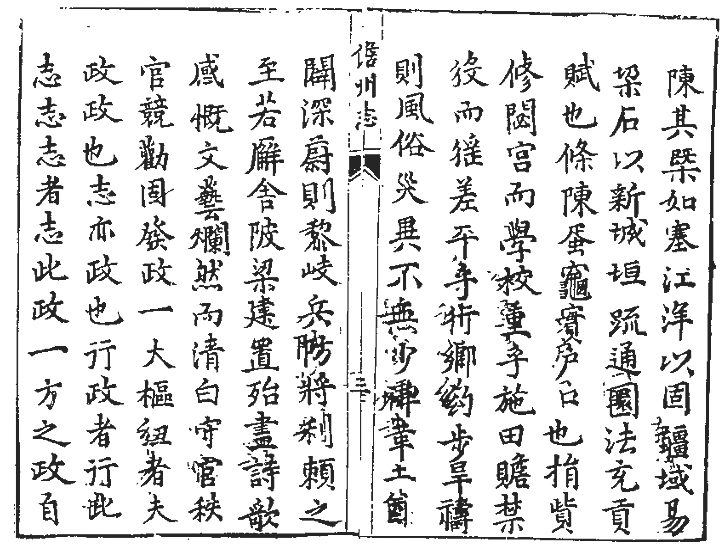 陳其槩如塞江洋以固疆域易
梁石以新城垣疏通圜法充貢
賦也條陳蛋竈實戶口也捐貲
修閟宮而學校重乎施田贍禁
役而徭差平乎行鄉約步旱禱
則風俗災異不無少裨葦土箇
儋州志
三
闢深蔚則黎岐兵防將利賴之
至若廨舍陂梁建置殆盡詩歌
感慨文藝爛然而清白守官秩
官競勸固發政一大樞紐者夫
政政也志亦政也行政者行此
志志志者志此政一方之政自